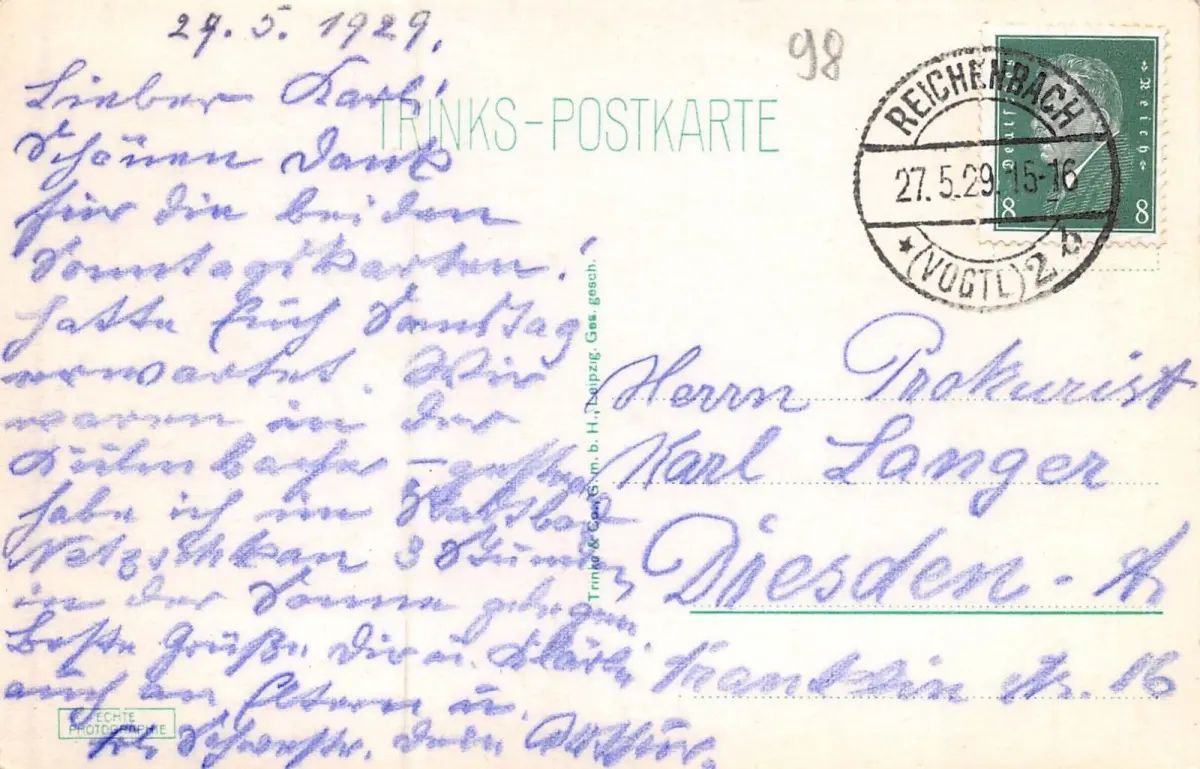 27.5.1929.
Lieber Karl!
Schönen Dank
für die beiden
Sonntagskarten!
Hatte Euch Sonntag
erwartet. Wir
waren in der
gestern
habe ich im
Netzschkau 3 Stunden
in der Sonne gelegen
Beste Grüße Dir u.
auch an Eltern u.
Schwester. Dein Arthur.
TRINKS-POSTKARTE
98
Deutsches Reich
8 8
REICHENBACH
27.5.29.15-16
* (VOGTL) 2 b
Trinks & Co., G.m.b.H., Leipzig. Ges. gesch.
Herrn Prokurist
Karl Langer
Dresden - A
Franklin Str. 16
ECHTE
PHOTOGRAPHIE